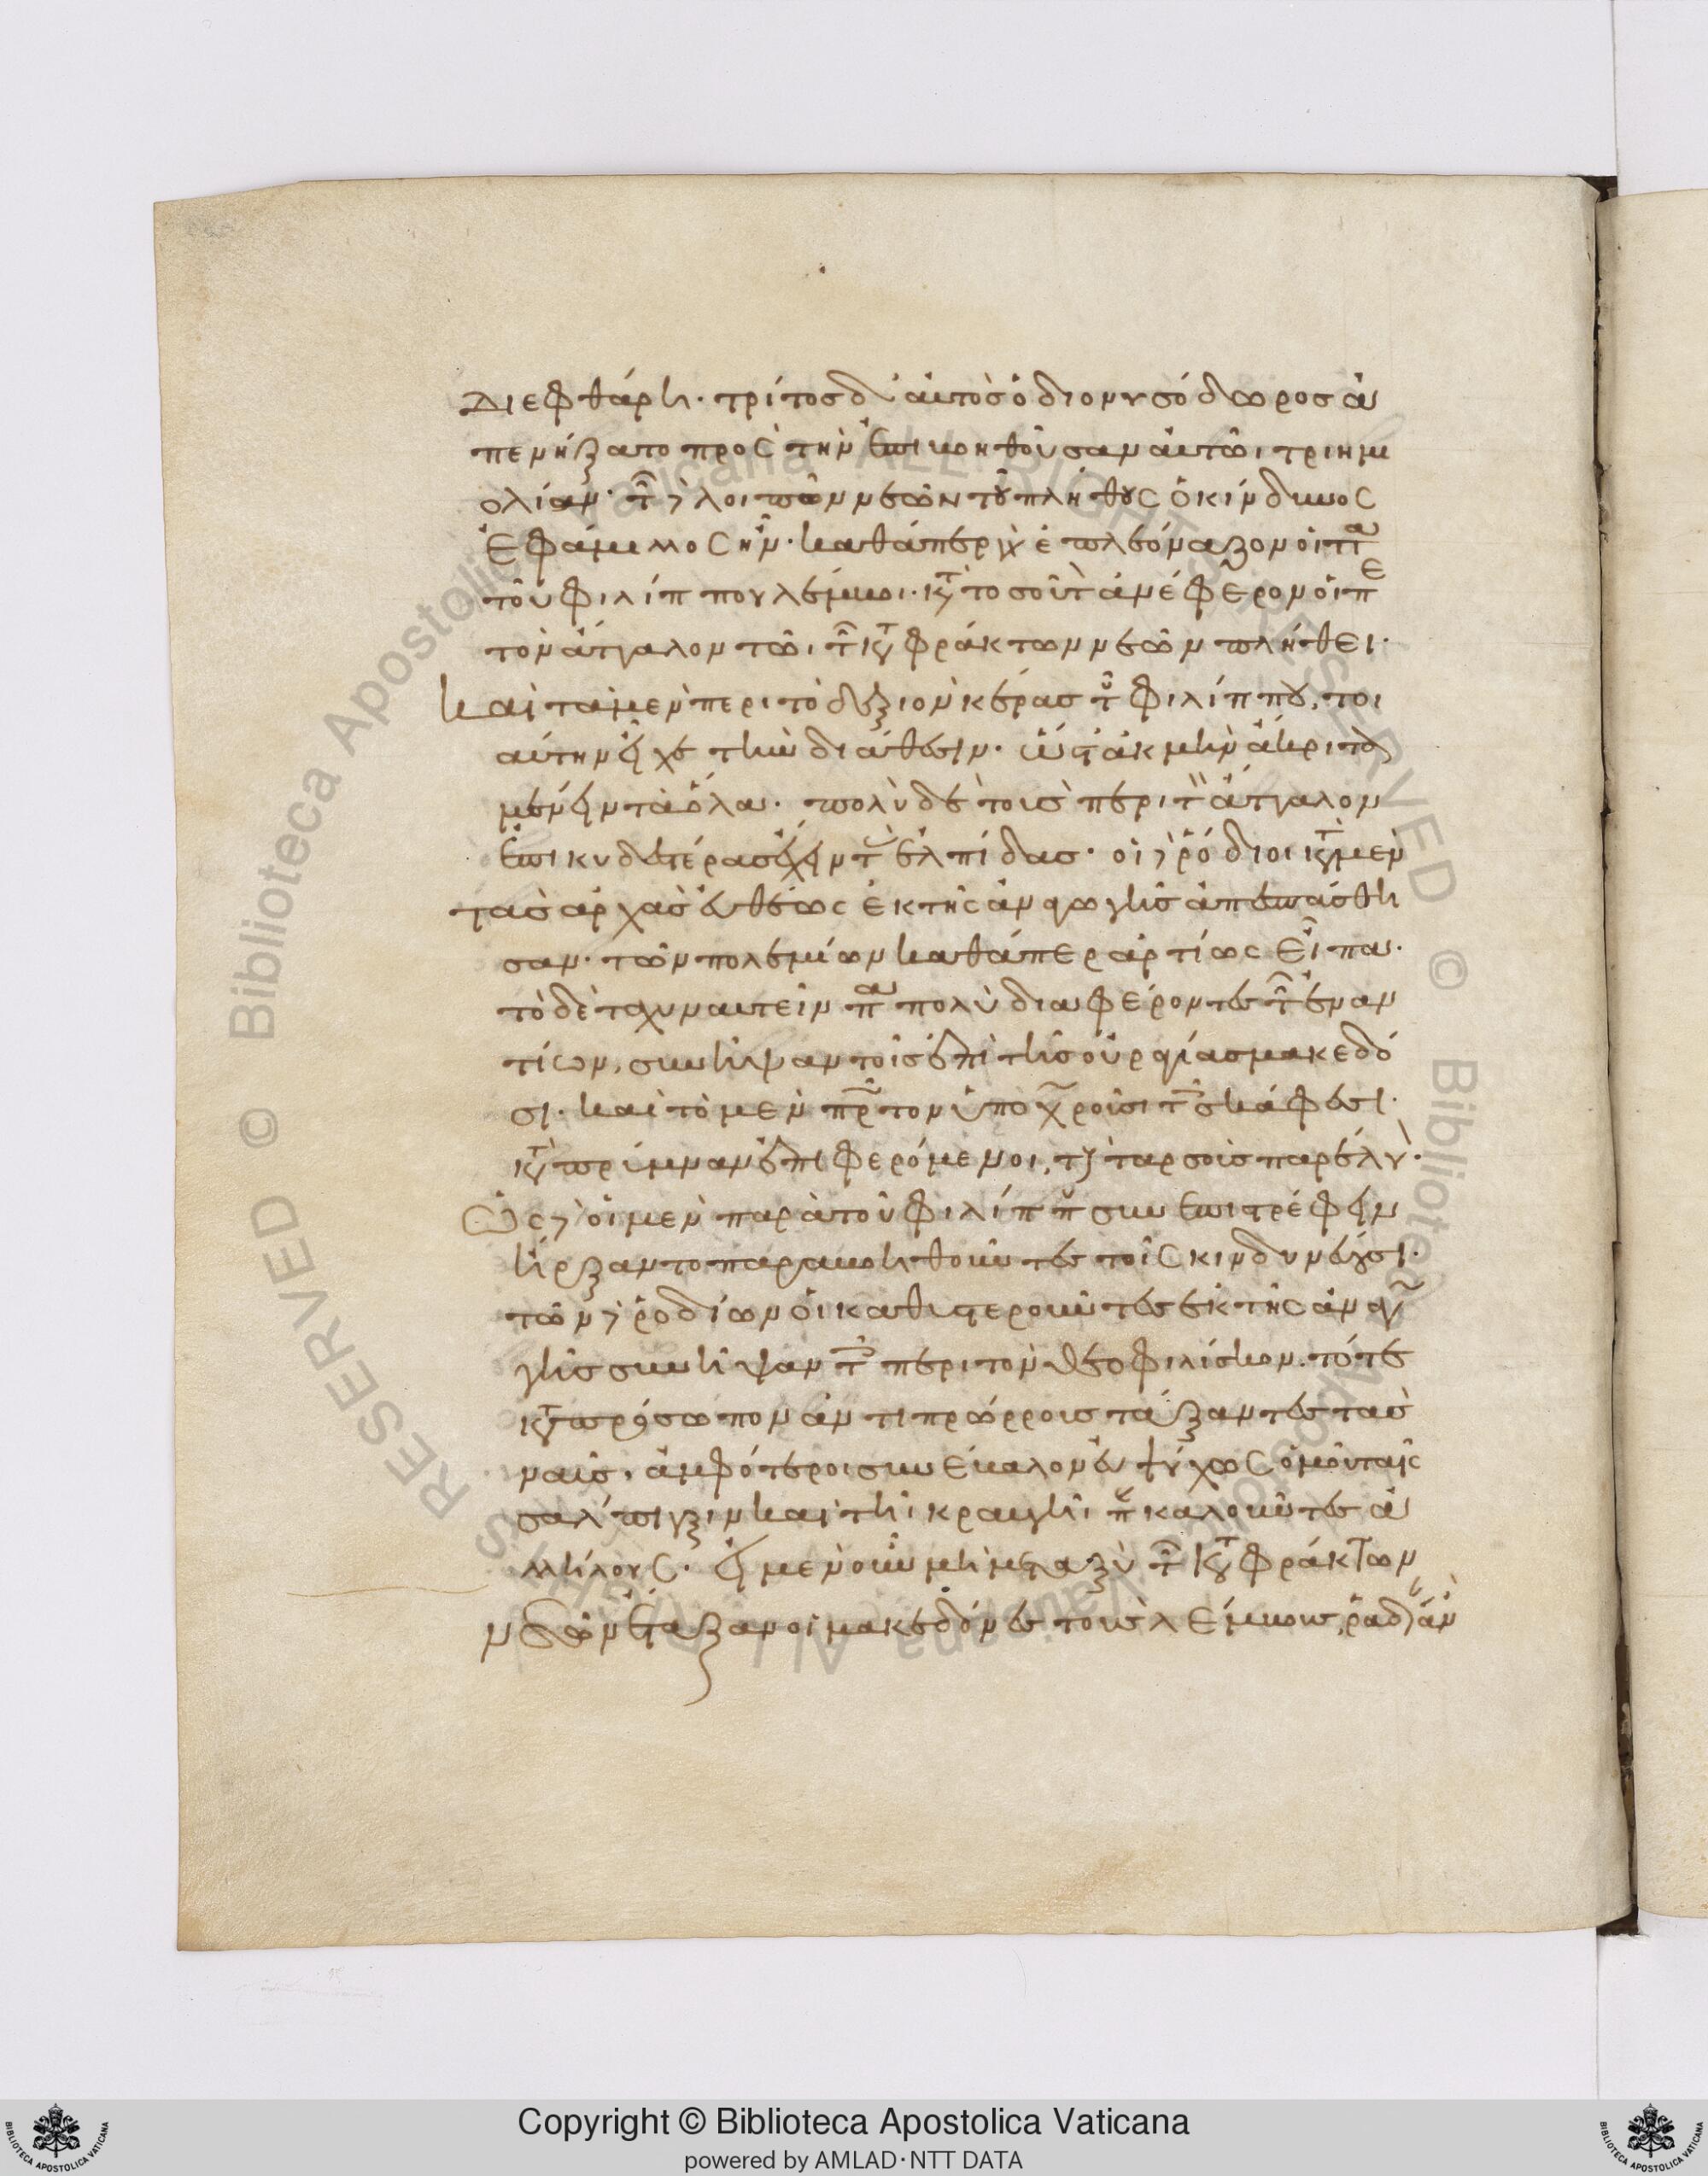 διεφθάρη. τρίτος δ' αὐτὸς ὁ διονυσόδωρος ἀ
πενήξατο πρὸς τὴν ἐπιβοηθοῦσαν αὐτῶι τριημι
ολίαν. τῶν δὲ λοιπῶν νεῶν τοῦ πλήθους ὁ κίνδυνος
ἐφάμιλλος ἦν. καθάπερ γὰρ ἐπλεόναζον οἱ παρὰ
τοῦ φιλίππου λέμβοι. κατὰ τοσοῦτ' ἀνέφερον οἱ περὶ
τὸν ἄτταλον τῶι τῶν καταφράκτων νεῶν πλήθει.
καὶ τὰ μὲν περὶ τὸ δεξιὸν κέρας τοῦ φιλίππου, τοι
αύτην εἶχε τὴν διάθεσιν. ὥστ' ἀκμὴν ἄκριτα
μένειν τὰ ὅλα. πολὺ δὲ τοὺς περὶ τὸν ἄτταλον
ἐπικυδεστέρας ἔχειν τὰς ἐλπίδας. οἱ δὲ ῥόδιοι κατὰ μὲν
τὰς ἀρχὰς εὐθέως ἐκ τῆς ἀναγωγῆς ἀπεσπάσθη
σαν. τῶν πολεμίων καθάπερ ἀρτίως εἶπα.
τὸ δὲ ταχυναυτεῖν παρὰ πολὺ διαφέροντες τῶν ἐναν
τίων, συνῆψαν τοῖς ἐπὶ τῆς οὐραγίας μακεδό
σι. καὶ τὸ μὲν πρῶτον ὑποχωροῦσι τοῖς σκάφεσι.
κατὰ πρύμναν ἐπιφερόμενοι, τοὺς ταρσοὺς παρέλυον.
ὡς δὲ οἱ μὲν παρὰ τοῦ φιλίππου συνεπιστρέφειν
ἤρξαντο παραβοηθοῦντες τοῖς κινδυνεύουσι.
τῶν δὲ ῥοδίων οἱ καθυστεροῦντες ἐκ τῆς ἀναγω
γῆς συνῆψαν τοῖς περὶ τὸν θεοφιλίσκον. τότε
κατὰ πρόσωπον ἀντιπρώρρους τάξαντες τὰς
ναῦς, ἀμφότεροι συνέβαλον εὐψύχως ὁμοῦ ταῖς
σάλπιγξιν καὶ τῆι κραυγῆι παρακαλοῦντες ἀ
λλήλους. εἰ μὲν οὖν μὴ μεταξὺ τῶν καταφράκτων
νεῶν ἔταξαν οἱ μακεδόνες τοὺς λέμβους, ῥαδίαν